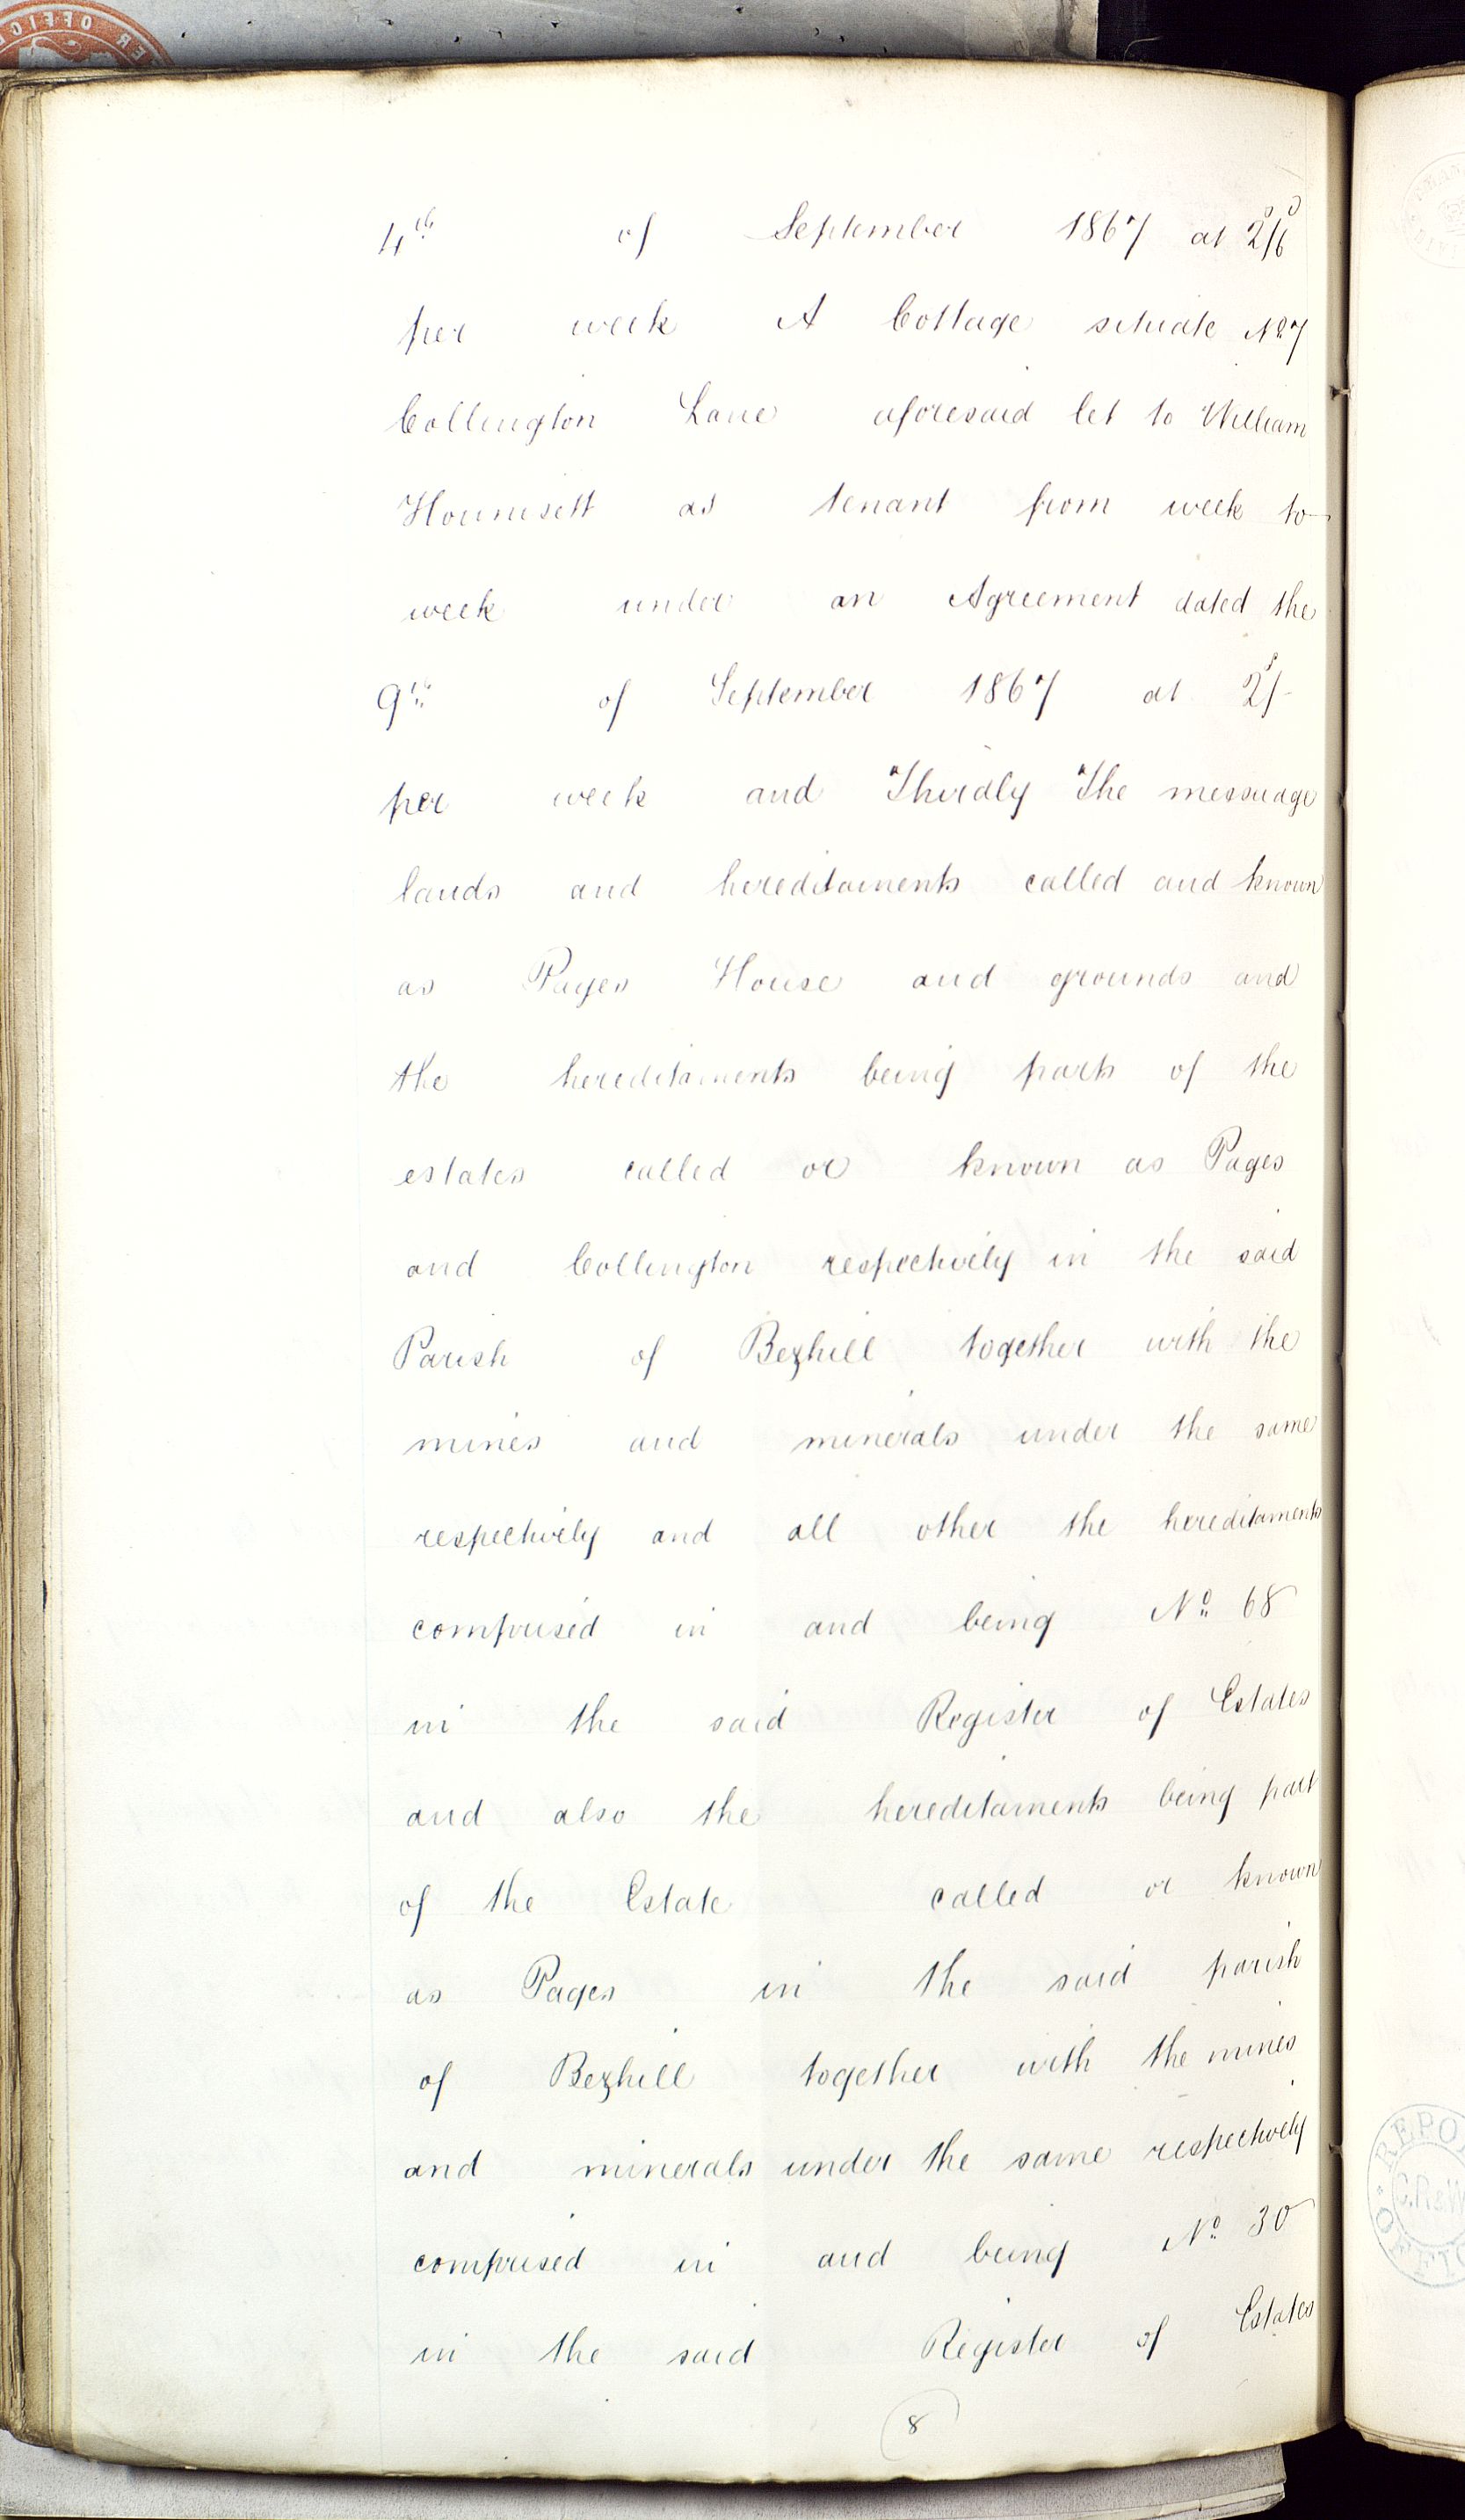 4th of September 1867 at 2s/6d
per week A Cottage situate No 7
Collington Lane aforesaid let to William
Hounisett as tenant from week to
week under an Agreement dated the
9th of September 1867 at 2s/-
per week and Thirdly The messuage
lands and hereditaments called and known
as Pages House and grounds and
the hereditaments being parts of the
estates called or known as Pages
and Collington respectively in the said
Parish of Bexhill together with the
mines and minerals under the same
respectively and all other the hereditaments
comprised in and being No 68
in the said Register of Estates
and also the hereditaments being part
of the Estate called or known
as Pages in the said parish
of Bexhill together with the mines
and minerals under the same respectively
comprised in and being No 30
in the said Register of Estates
8